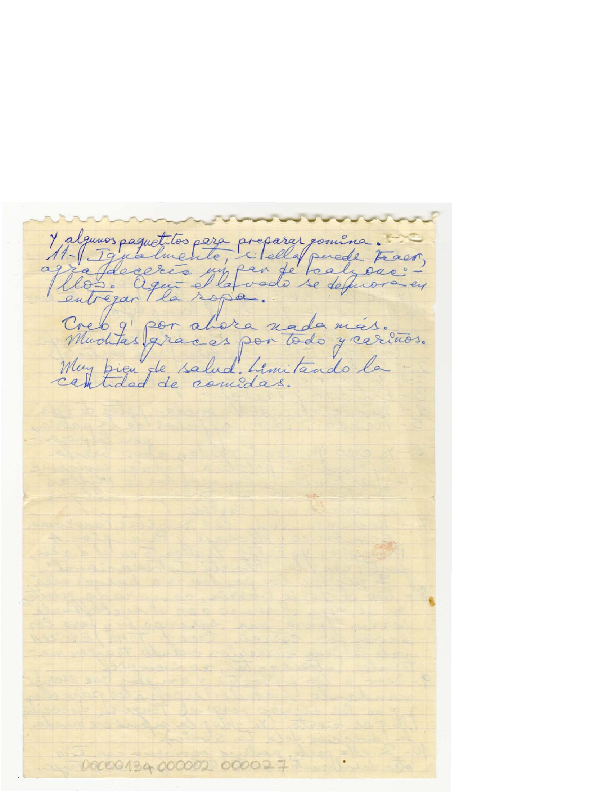 Y algunos paquetitos para preparar gomina.
11- Igualmente, si ella puede traer,
agradecería un par de calzonci-
llos. Aquí el lavado se demora en
entregar la ropa.
Creo q' por ahora nada más.
Muchas gracias por todo y cariños.
Muy bien de salud. Limitando la
cantidad de comidas.
00000134 000002 000027